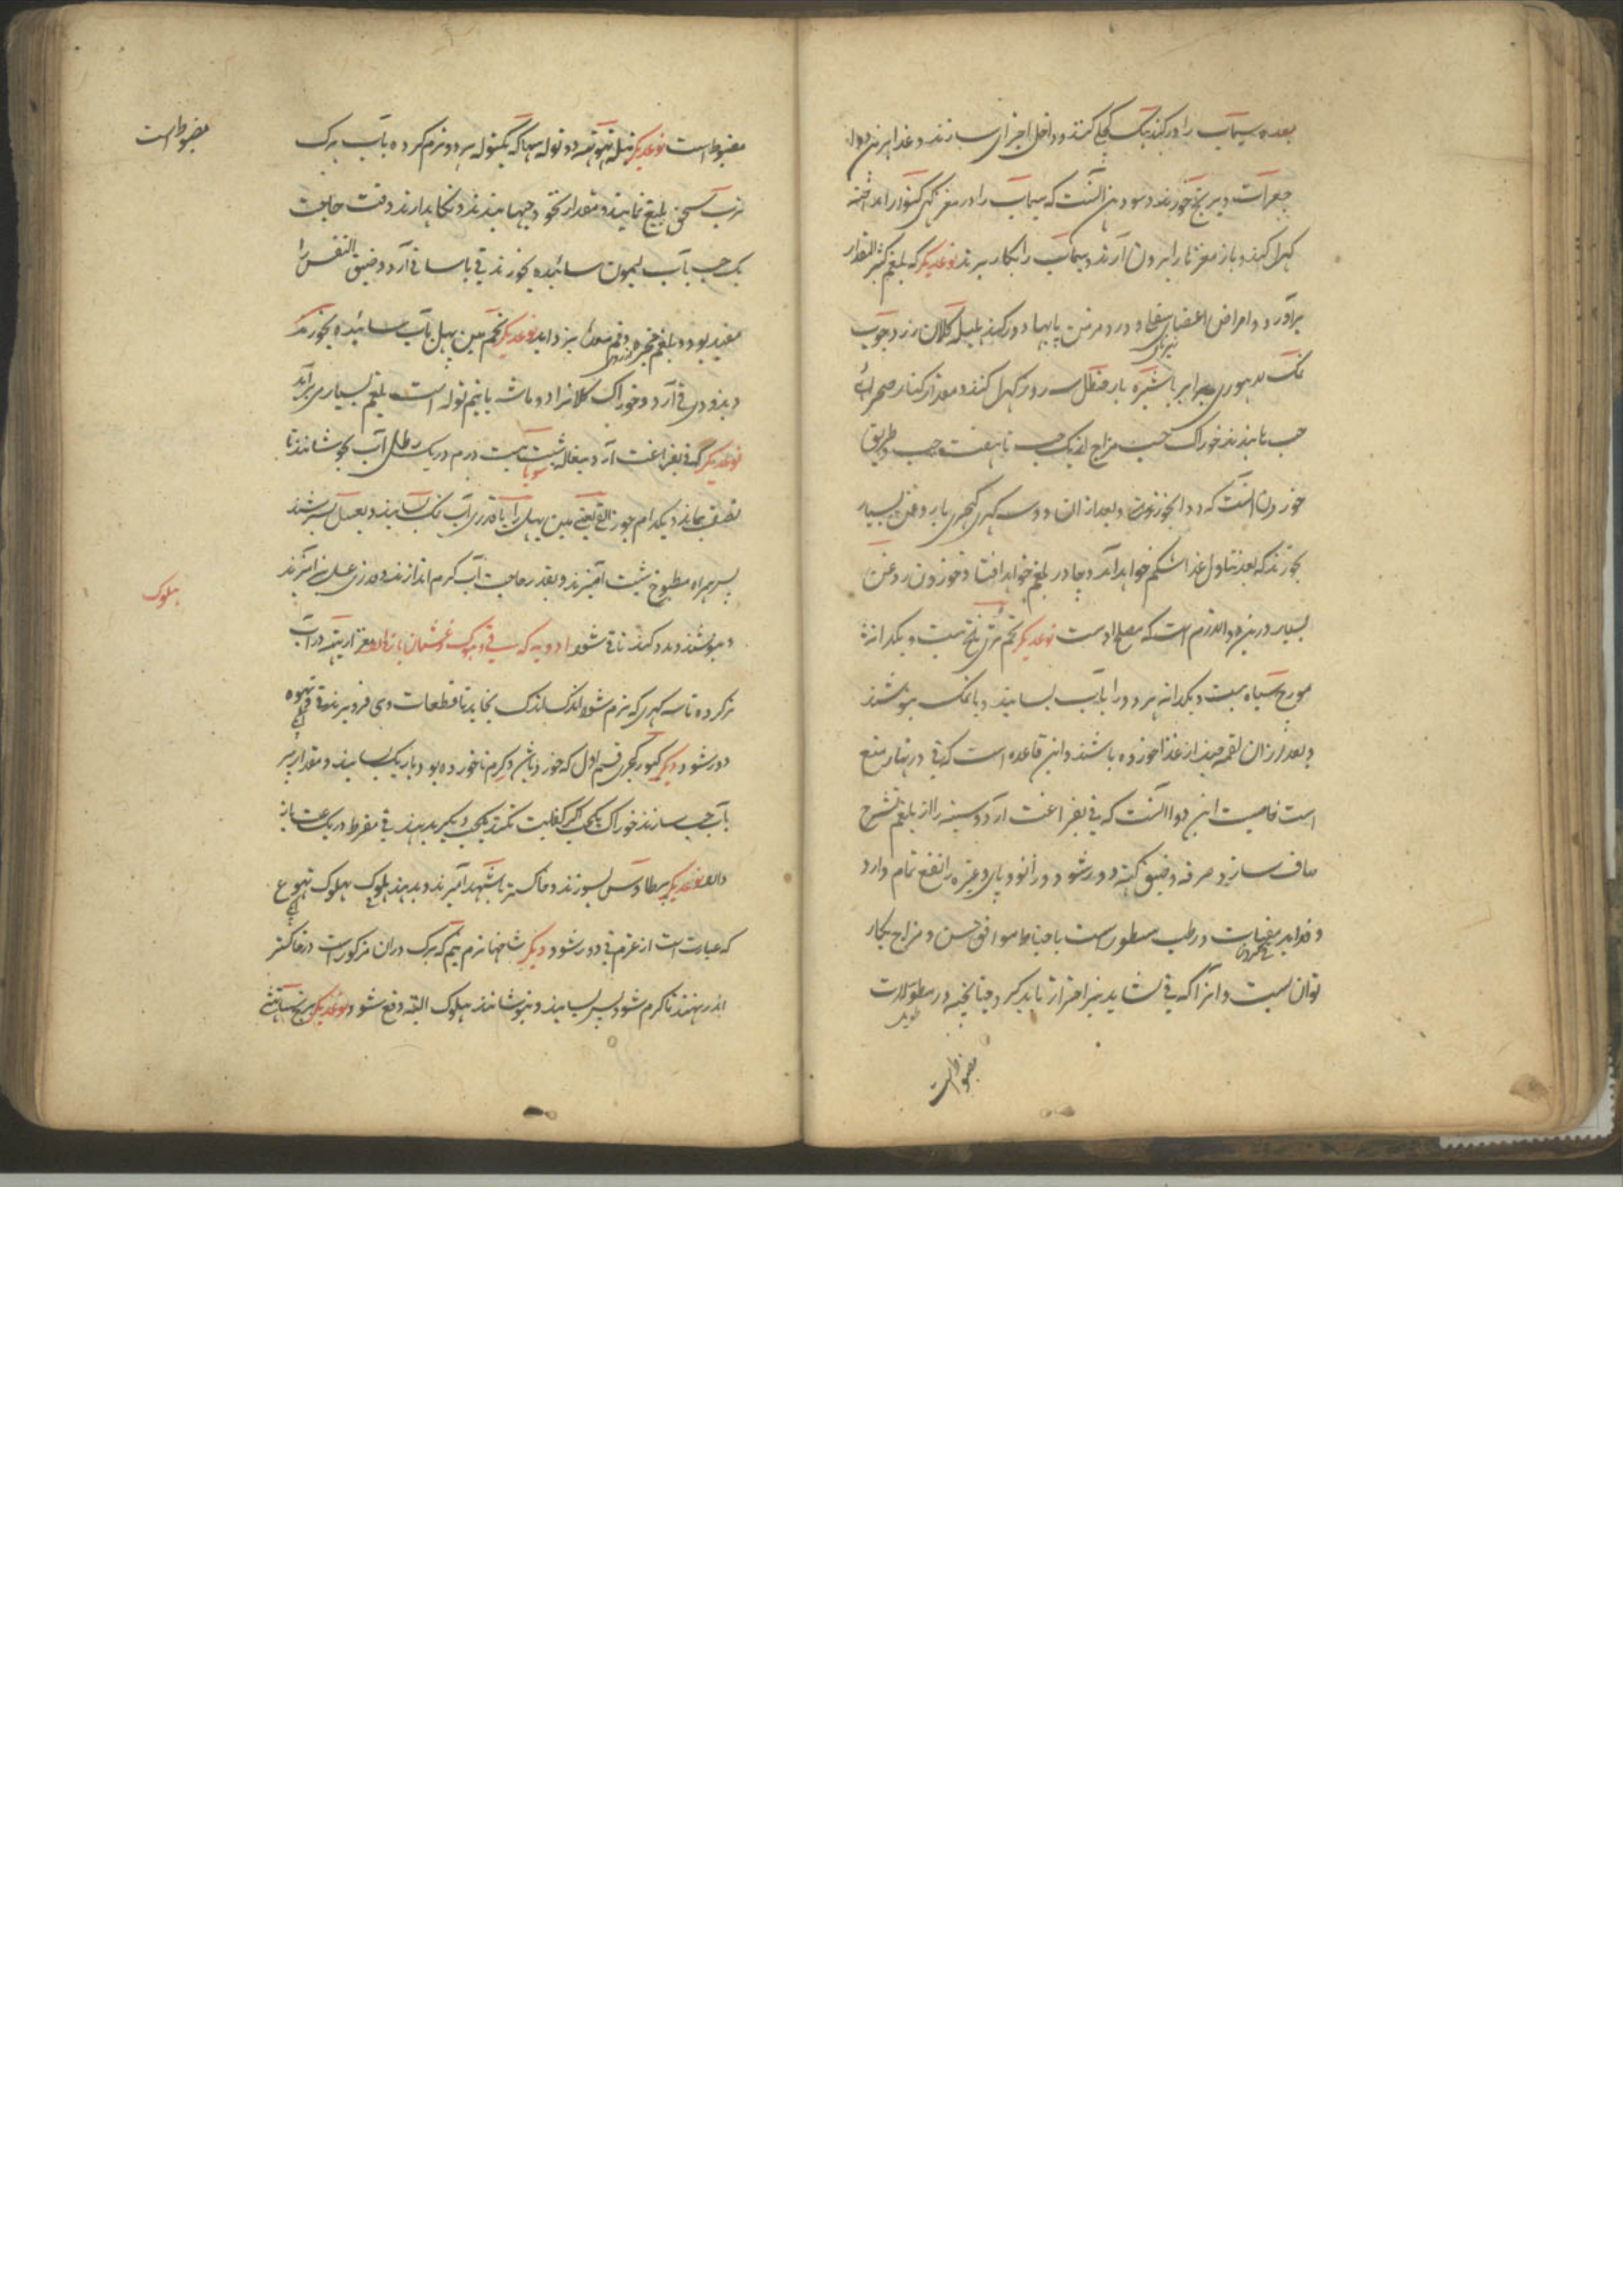 بعده سیماب را در کندهک کجلی کنند و داخل اجزای سازند و غذا برین دوا
جغرات و برنج خورند و سودن آنست که سیماب را در مغز کهی کنوار انداخته
کهرل کنند و باز مغز را بیرون آرند و سیماب را بکار برند نوعدیکر که بلغم کثیر المقدار
برآورد و امراض اعضای سفلی و درد مزمن پایها دور کند هلیله کلان زرد چوب
نمک لاهوری برابر با شیره بار حنظل سه روز کهرل کنند و مقدار کنار صحرائی
حب بابندند خوراک حسب مزاج از یک حب تا هفت حب و طریق
خوردن اینست که دوا بخورند و بعد از ان دو سه کهری کهچری با روغن بسیار
بخورند که بعد تناول غذا شکم خواهد آمد و چادر بلغم خواهد افتاد و خوردن روغن
بسیار درین دوا لازم است که مصلح اوست نوعدیکر تخم ترئی تلخ بیست و یکدانه
مورچ سیاه بیست و یکدانه هر دو را بآب بسایند و با نمک بنوشند
و بعد از ان لقمه چند از غذا خورده باشند و این قاعده است که قی در نهار منع
است خاصیت این دوا آنست که قی بفراغت آرد و سینه را از بلغم لزج
صاف سازد و سرفه و ضیق کهنه دور شود و در زانو و پای و غیره را نفع تمام دارد
و فواید مقیات در طب مسطور است باحتیاط موافق سن و مزاج بکار
توان بست و انرا که قی نشاید نیز احتراز باید کرد چنانچه در مطولات
مضبوط است
مضبوط است نوعدیکر نیله تهوتهه دو توله سهاکه یکتوله هر دو نرم کرده بآب برک
ترب سحق بلیغ نمایند و مقدار نخود حبها بندند و نکاهدارند وقت حاجت
یک حب بآب لیمون سائیده بخورند قی باسانی آرد و ضیق النفس را
مفید بود و بلغم معده بزداید نوعدیکر تخم مین پهل بآب سائیده بخورند
و بزودی قی آرد و خوراک کلانرا دو ماشه یا نیم توله است بلغم بسیار می برآرد
نوعدیکر که قی بفراغت آرد شبت بیست درم در یک رطل آب بجوشانند تا
نصف بماند و یکدرم جوز القی یعنی مین پهل را با قدری آب نمک بسایند و بعسل بسرشند
پس همراه مطبوخ شبت آمیزند و بقدر حاجت آب کرم اندازند و قدری عسل نیز آمیزند
و بنوشند و مدد کنند تا قی شود ادویه که قی و هلوک و غثیان باز دارد
تر کرده تا سه کهری که نرم شود اندک اندک بخاید تا قطعات وی فرو برند قی و تهوه
دور شود دیکر کپور کچری قسم اول که خورد باشد و کرم ناخورده بود باریک بسایند و مقدار بیر
بآب حب سازند خوراک یکحب اکر کفایت نکند یکحب دیکر بدهند قی مفرط در یک ساعت باز
دارد نوعدیکر پر طاوس بسوزند و خاکستر با شهد آمیزند و بدهند هلوک هلوک تهوع
که عبارت است از عزم قی دور شود دیکر شاخها نرم نیم که برک دران مذکور است در خاکستر
اندر نهند تا کرم شود پس بسایند و بنوشانند هلوک البته دفع شود نوعدیکر برنج ساتهی
مضبوط است
هلوک